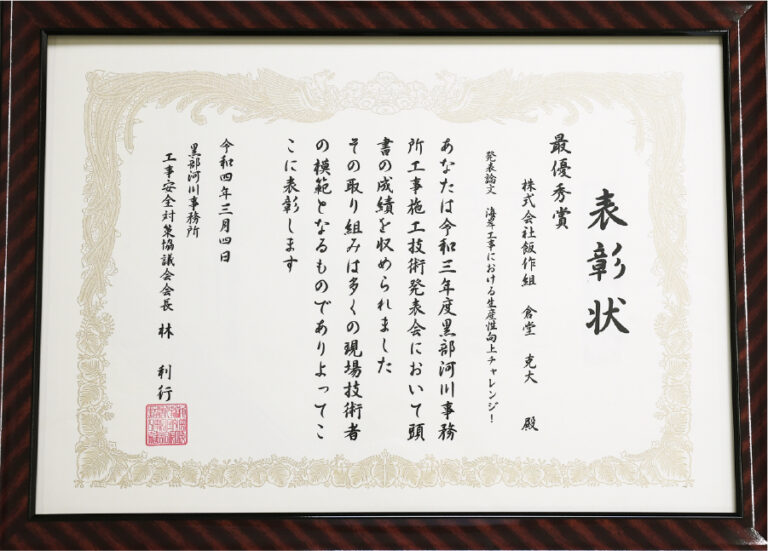 表彰状
最優秀賞
株式会社飯作組 倉堂 克大 殿
発表論文 海岸工事における生産性向上チャレンジ！
あなたは令和三年度黒部河川事務
所工事施工技術発表会において頭
書の成績を収められました
その取り組みは多くの現場技術者
の模範となるものでありよってこ
こに表彰します
令和四年三月四日
黒部河川事務所
工事安全対策協議会会長 林 利行